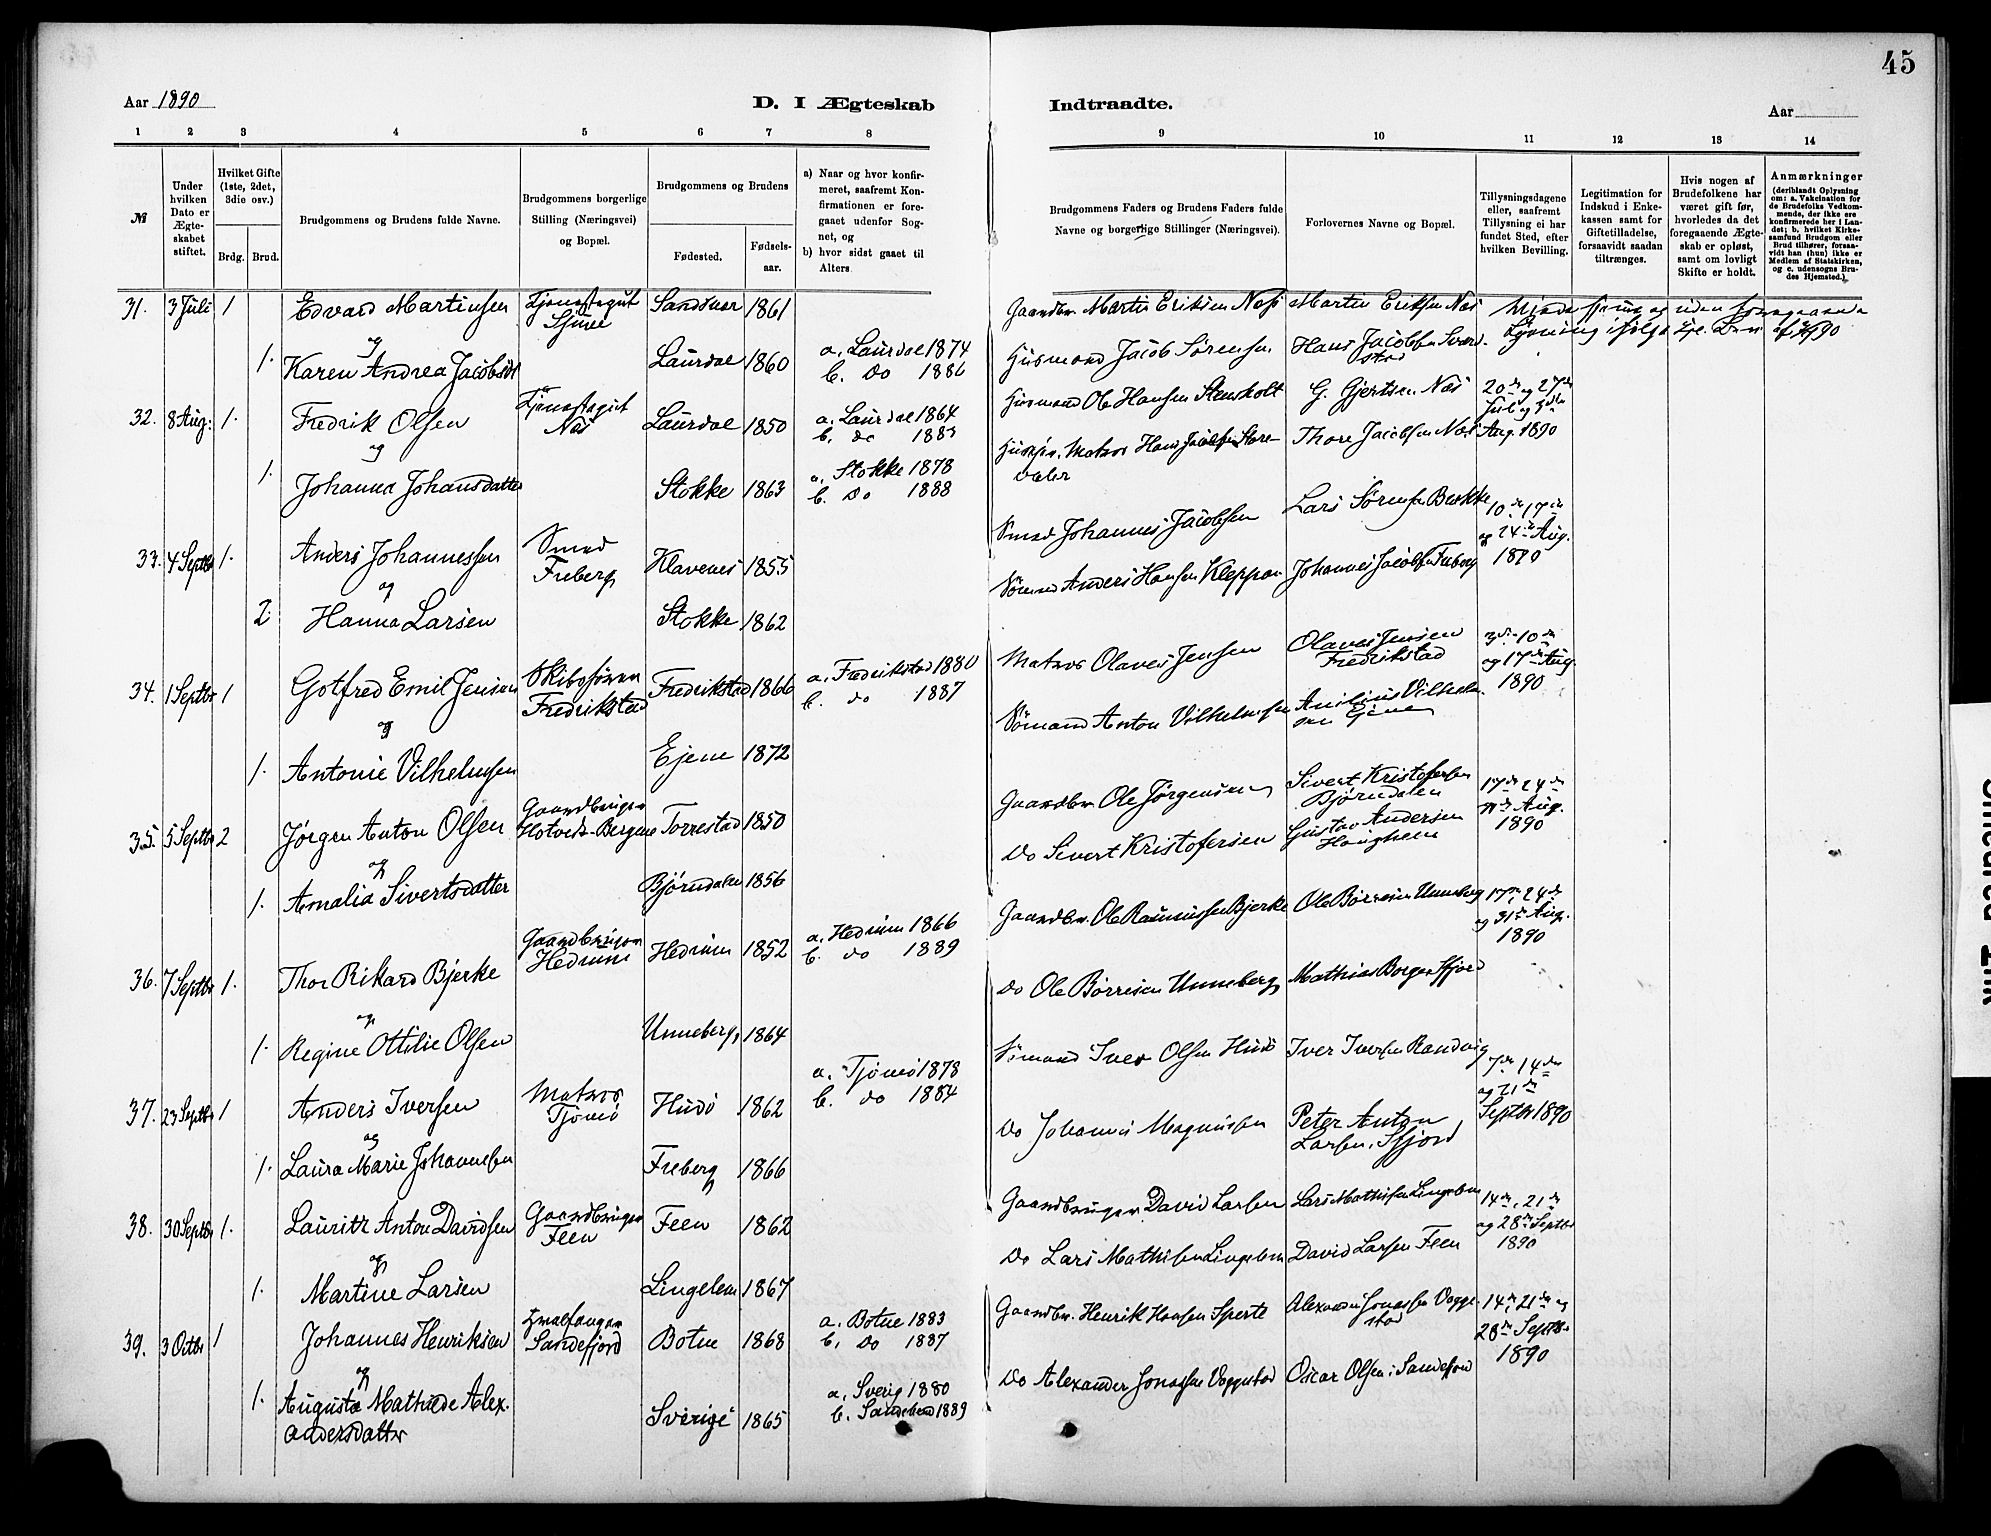 45
Aar 1890
D. I Ægteskab
Indtraadte.
Aar
1 2 3 4 5 6 7 8 9 10 11 12 13 14
№
Under hvilken Dato er Ægteskabet stiftet.
Hvilket Gifte (1ste, 2det, 3die osv.)
Brdg. Brud.
Brudgommens og Brudens fulde Navne.
Brudgommens borgerlige Stilling (Næringsvei) og Bopæl.
Brudgommens og Brudens
Fødested.
Fødselsaar.
a) Naar og hvor konfirmeret, saafremt Konfirmationen er foregaaet udenfor Sognet, og
b) hvor sidst gaaet til Alters.
Brudgommens Faders og Brudens Faders fulde Navne og borgerlige Stillinger (Næringsvei).
Forlovernes Navne og Bopæl.
Tillysningsdagene eller, saafremt Tillysning ei har fundet Sted, efter hvilken Bevilling.
Legitimation for Indskud i Enkekassen samt for Giftetilladelse, forsaavidt saadan tiltrænges.
Hvis nogen af Brudefolkene har været gift før, hvorledes da det foregaaende Ægteskab er opløst, samt om lovligt Skifte er holdt.
Anmærkninger
(deriblandt Oplysning om: a. Vakcination for de Brudefolks Vedkommende, der ikke ere konfirmerede her i Landet; b. hvilket Kirkesamfund Brudgom eller Brud tilhører, forsaavidt han (hun) ikke er Medlem af Statskirken, og c. udensogns Brudes Hjemsted.)
31. 3 Juli 1 Edvard Martinsen Tjenestegut Sandsvær 1861 Gaardbr. Martin Eriksen Næs Martin Eriksen Næs
og
1. Karen Andrea Jacobsdt Laurdal 1860 a. Laurdal 1874 b. Do 1886 Husmand Jacob Sørensen Hans Jacobsen
32. 8 Aug: 1. Fredrik Olsen Tjenestegut Næs Laurdal 1850 a. Laurdal 1864 b. do 1883 Husmand Ole Hansen Stensholt G. Gjertsen Næs 20de og 27de Juli og 3die Aug. 1890
og
1. Johanna Johansdatter Stokke 1863 a. Stokke 1878 b. Do 1888 Matros Hans Jacobsen Thore Jacobsen Næs
33. 4 Septbr 1. Anders Johannessen Smed Freberg Klavenes 1855 Smed Johannes Jacobsen Lars Sørensen Bakke 10de 17de og 24de Aug. 1890
og
2 Hanna Larsen Stokke 1862 Sømand Anders Hansen Kleppan Johannes Jacobsen Freberg
34. 1 Septbr 1 Gotfred Emil Jensen Skibsfører Fredrikstad Fredrikstad 1866 a. Fredrikstad 1880 b. do 1887 Matros Olaves Jensen Olaves Jensen Fredrikstad 3die 10de og 17de Aug. 1890
og
1. Antonie Vilhelmsen Ejene 1872 Sømand Anton Vilhelmsen
35. 5 Septbr 2 Jørgen Anton Olsen Gaardbruger Hotvedt-Bergene Torrestad 1850 Gaardbr Ole Jørgensen Sivert Kristofersen Bjørndalen 17de 24de Aug. 1890
og
1. Amalia Sivertsdatter Bjørndalen 1856 Do Sivert Kristofersen Gustav Andersen Haughem
36. 7 Septbr 1. Thor Rikard Bjerke Gaardbruger Hedrum Hedrum 1852 a. Hedrum 1866 b. do 1889 Gaardbr. Ole Rasmussen Bjerke Ole Børresen Unneberg 17de, 24de og 31de Aug. 1890
og
1. Regine Ottilie Olsen Unneberg 1864 Do Ole Børresen Unneberg Mathias Borgen Sfjord
37. 23 Septbr 1 Anders Iversen Matros Tjømø Hudø 1862 a. Tjømø 1878 b. do 1884 Sømand Iver Olsen Hudø Iver Iversen Randvig 7de 14de og 21de Septbr 1890
og
1. Laura Marie Johannesen Freberg 1866 Do Johannes Magnussen Peter Anton Larsen, Sfjord
38. 30 Septbr 1. Lauritz Anton Davidsen Gaardbruger Feen Feen 1862 Gaardbruger David Larsen Lars Mathisen Lingelem 14de, 21de og 28de Septbr 1890
og
1. Martine Larsen Lingelem 1867 Do Lars Mathisen Lingelem David Larsen Feen
39. 3 Octbr 1 Johannes Henriksen Hvalfanger Sandefjord Botne 1868 a. Botne 1883 b. Do 1887 Gaardbr. Henrik Hansen Sperte Alexander Jonassen Voggestad 14de, 21de og 28de Septbr 1890
og
1. Augusta Mathilde Alexandersdatter Sverige 1865 a. Sverig 1880 b. Sandefjord 1889 Do Alexander Jonassen Voggestad Oscar Olsen, Sandefjord